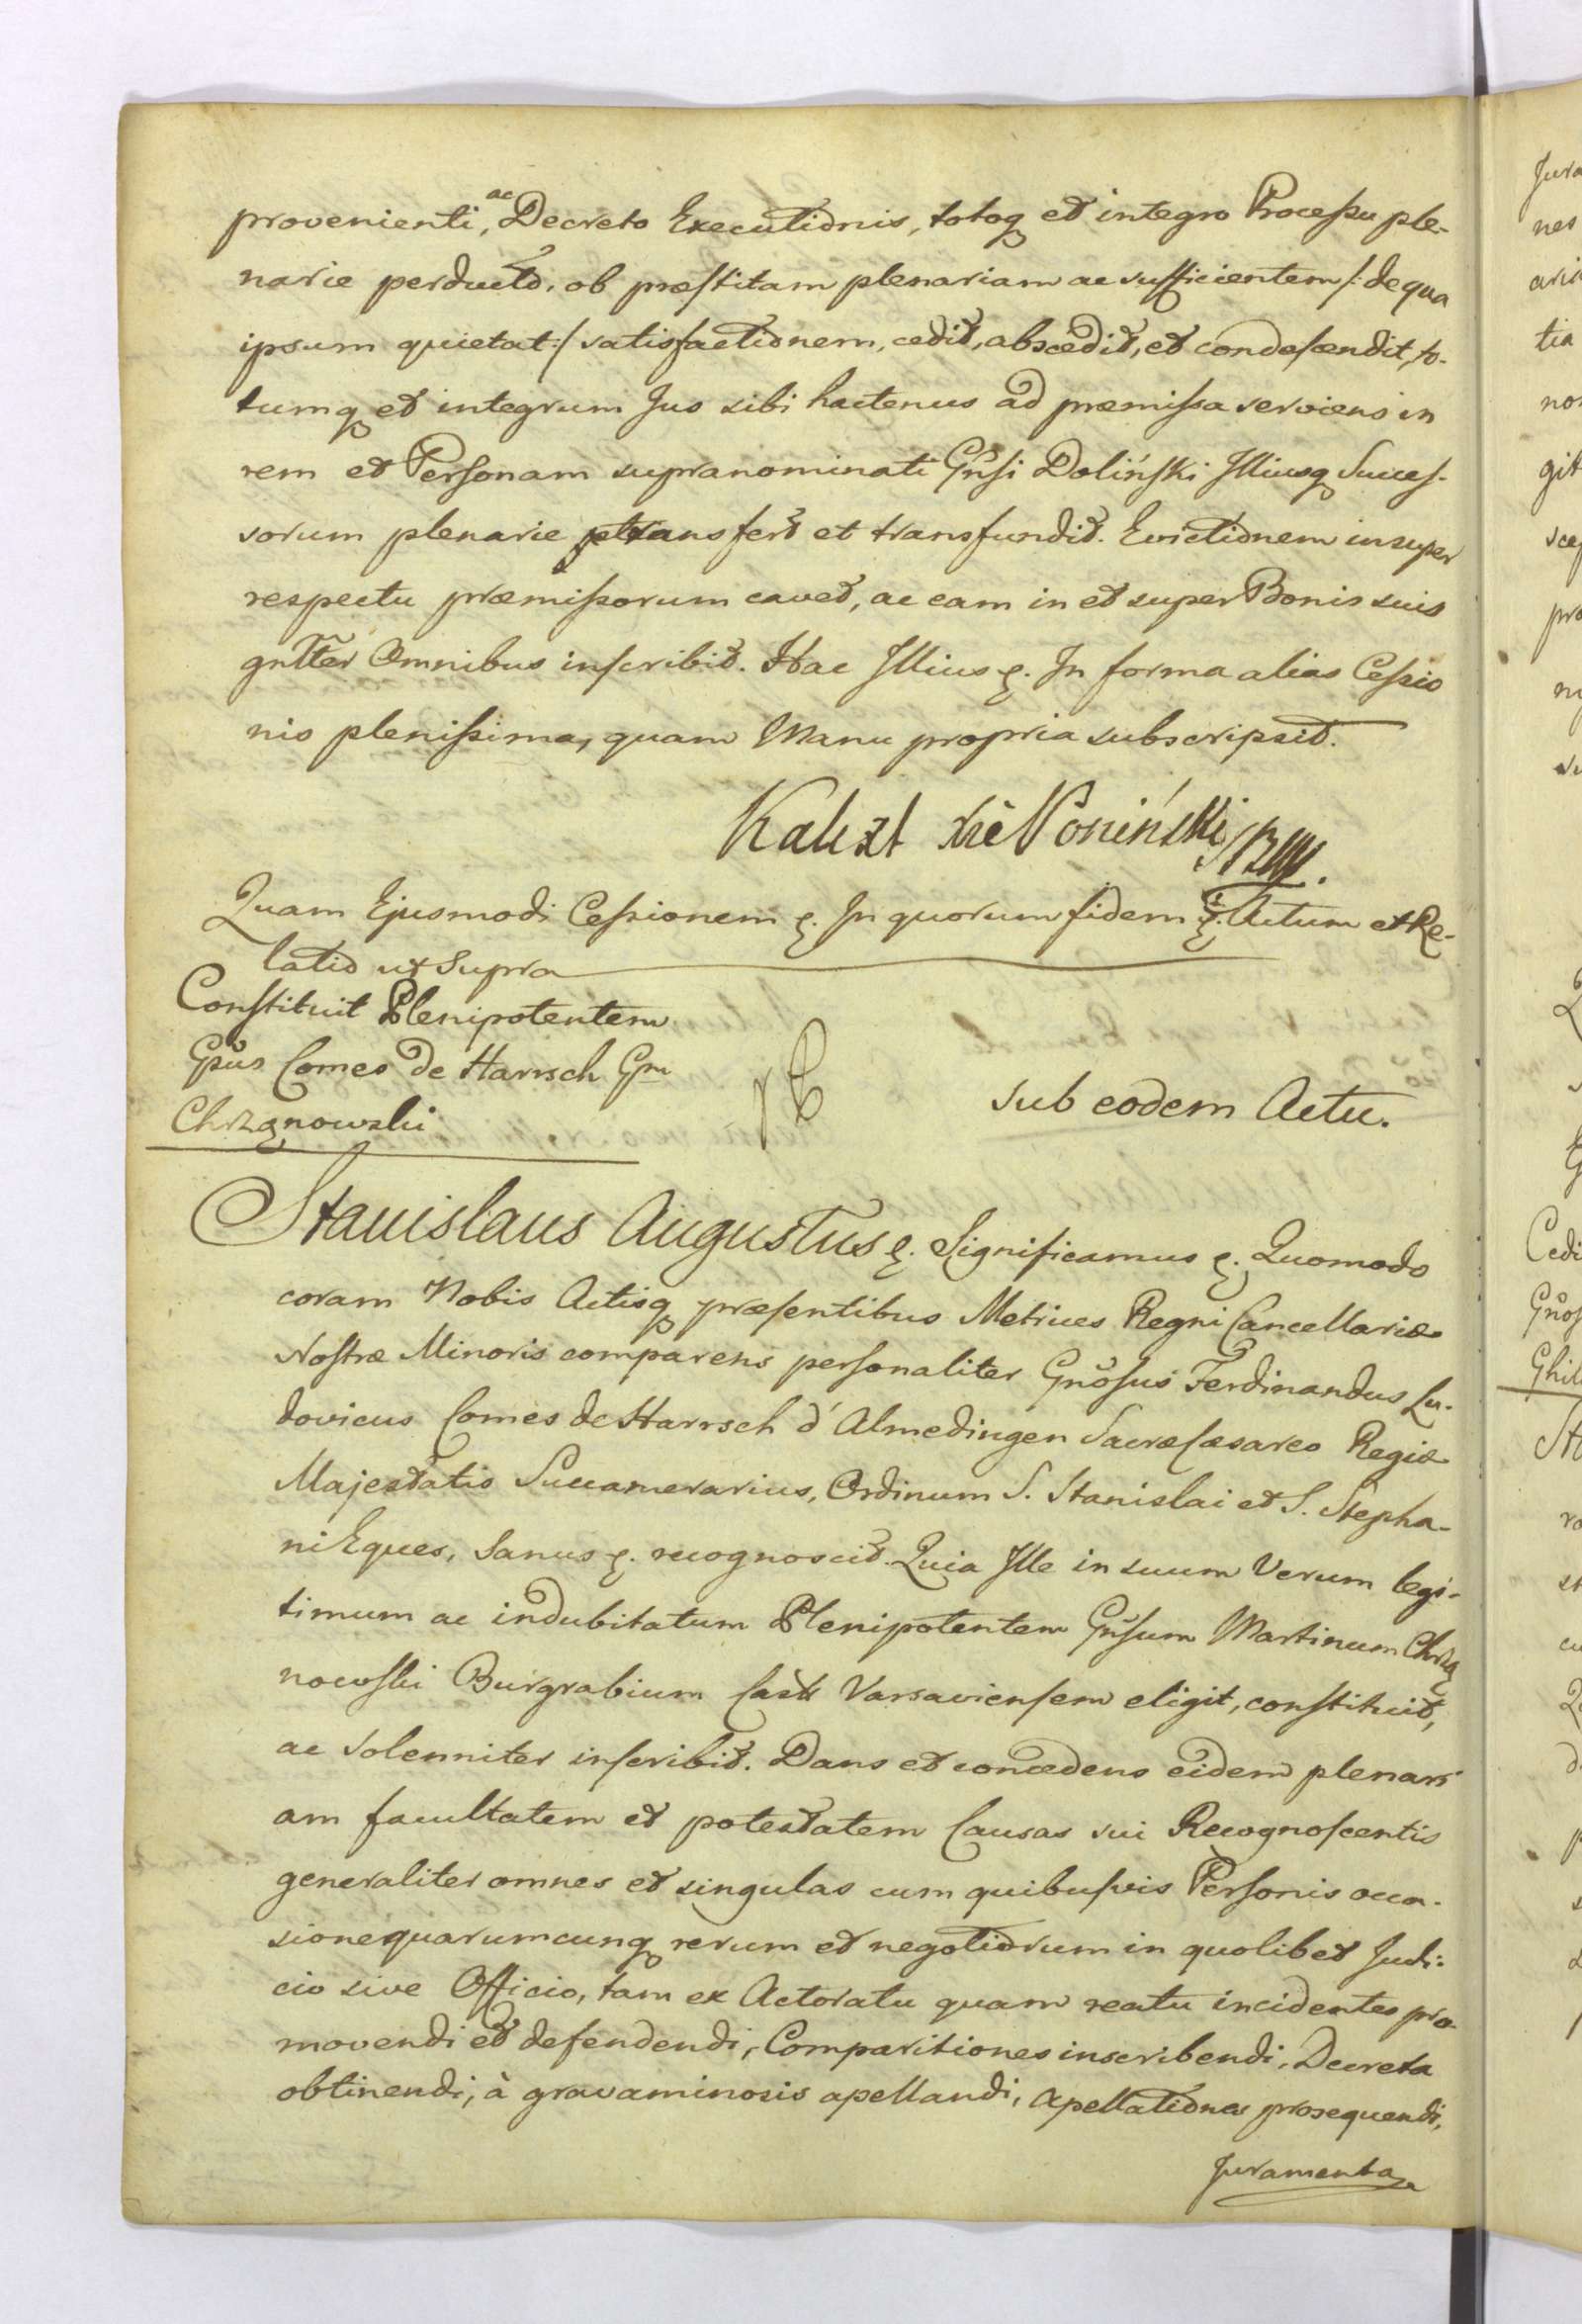 provenienti, ac Decreto Executionis, totoq et integro Processu ple-
narie perducto, ob præstitam plenariam ac sufficientem /: de qua
ipsum quietat :/ satisfactionem, cedit, abscedit, et condescendit, to-
tumq et integrum Jus sibi hactenus ad præmissa serviens in
rem et Personam supranominati Gnsi Doliński Illiusq Succes-
sorum plenarie transfert et transfundit. Evictionem insuper
respectu præmissorum cavet, ac eam in et super Bonis suis
gnlter Omnibus inscribit. Hac Illius &. In forma alias Cessio
nis plenissima, quam Manu propria subscripsit.
Kalixt Xże Poniński
Quam Ejusmodi Cessionem &. In quorum fidem &. Actum et Re-
latio ut Supra
Constituit Plenipotentem
Gnus Comes de Harrsch Gm
Chrzanowski
sub eodem Actu.
Stanislaus Augustus &. Significamus &. Quomodo
coram Nobis Actisq præsentibus Metrices Regni Cancellariæ
Nostræ Minoris comparens personaliter Gnosus Ferdinandus Lu-
dovicus Comes de Harrsch d' Almedingen Sacræ Cæsareo Regiæ
Majestatis Succamerarius, Ordinum S. Stanislai et S. Stepha-
ni Eques, Sanus &. recognoscit. Quia Ille in suum Verum legi-
timum ac indubitatum Plenipotentem Gnsum Martinum Chrzą
nowski Burgrabium Castr Varsaviensem eligit, constituit,
ac solenniter inscribit. Dans et concedens eidem plenari
am facultatem et potestatem Causas sui Recognoscentis
generaliter omnes et singulas cum quibusvis Personis occa-
sione quarumcunq rerum et negotiorum in quolibet Judi-
cio sive Officio, tam ex Actoratu quam reatu incidentes pro-
movendi et defendendi, Comparitiones inscribendi, Decreta
obtinendi, à gravaminosis apellandi, Apellationes prosequendi,
Juramenta